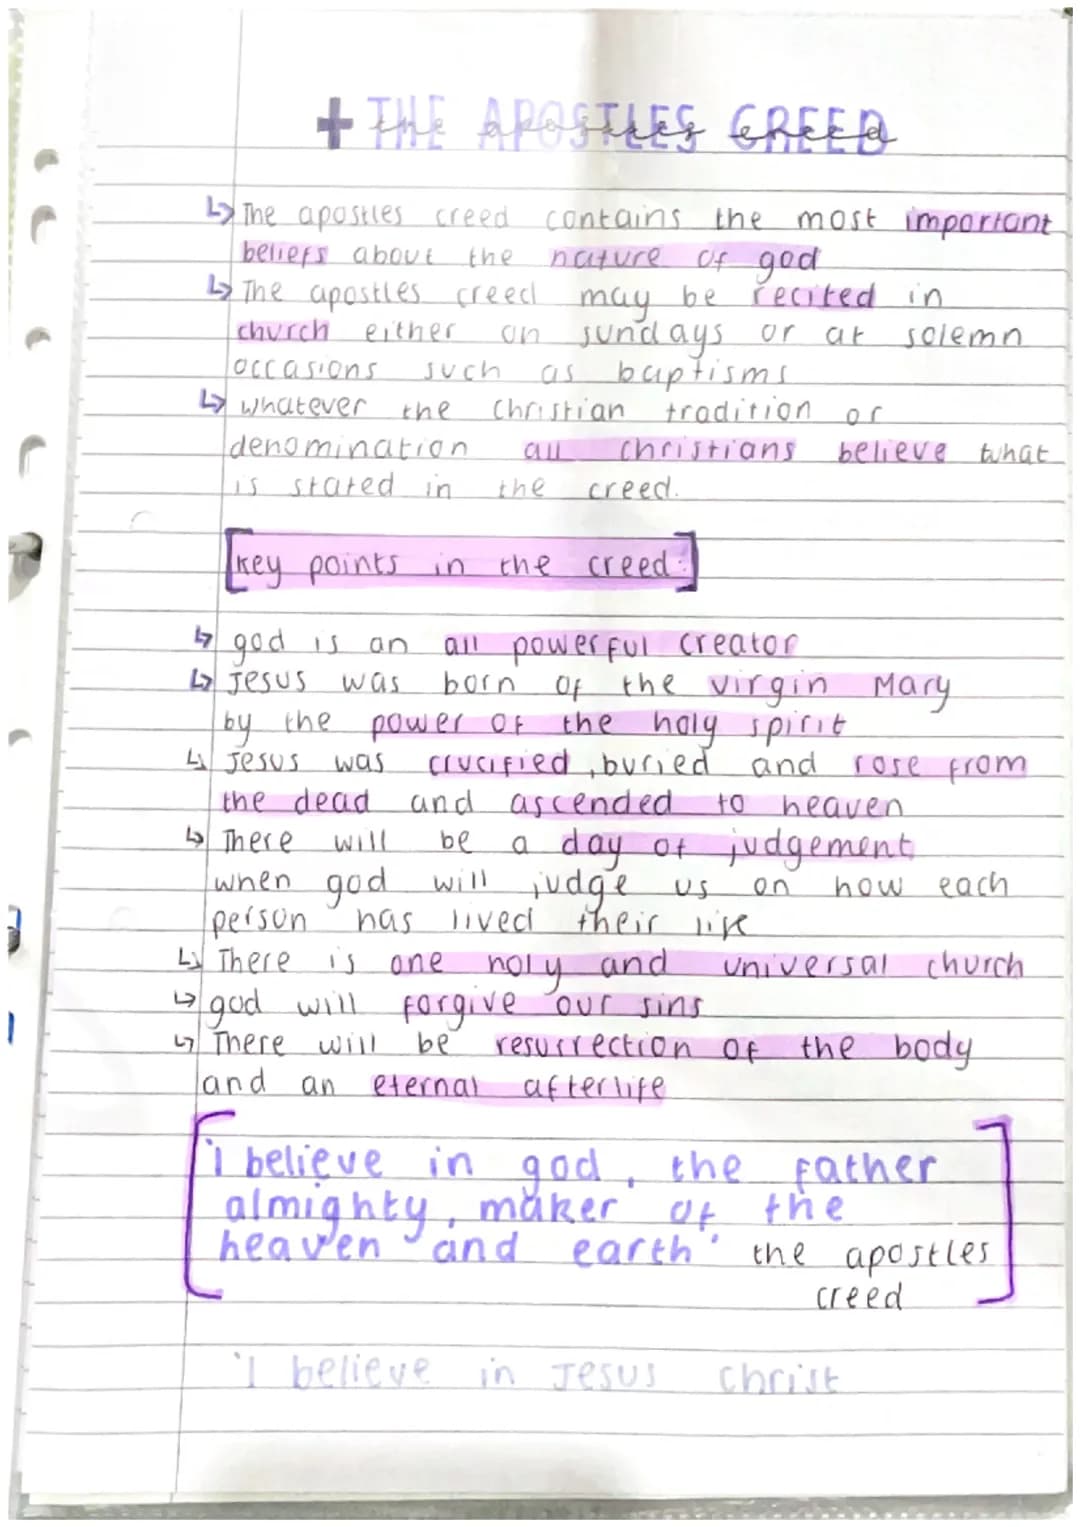 + THE APOSTLES CREED
the apostles creed
↳ The apostles creed contains the most important
beliefs about the nature of god
↳ The apostles creed may be recited in
church either on sundays or at solemn
occasions such as baptisms
↳ whatever the Christian tradition or
denomination all christians believe what
is stated in the creed.
[key points in the creed:]
↳ god is an all powerful creator
↳ Jesus was born of the virgin Mary
by the power of the holy spirit
↳ Jesus was crucified, buried and rose from
the dead and ascended to heaven
↳ There will be a day of judgement
when god will judge us on how each
person has lived their life
↳ There is one holy and universal church
↳ god will forgive our sins
↳ There will be resurrection of the body
and an eternal afterlife
['i believe in god, the father
almighty, maker of the
heaven and earth' the apostles
creed]
'I believe in Jesus Christ